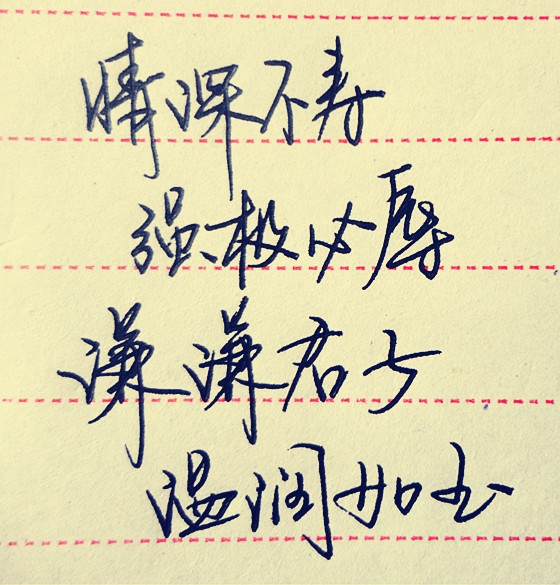 情深不寿
强极必辱
谦谦君子
温润如玉